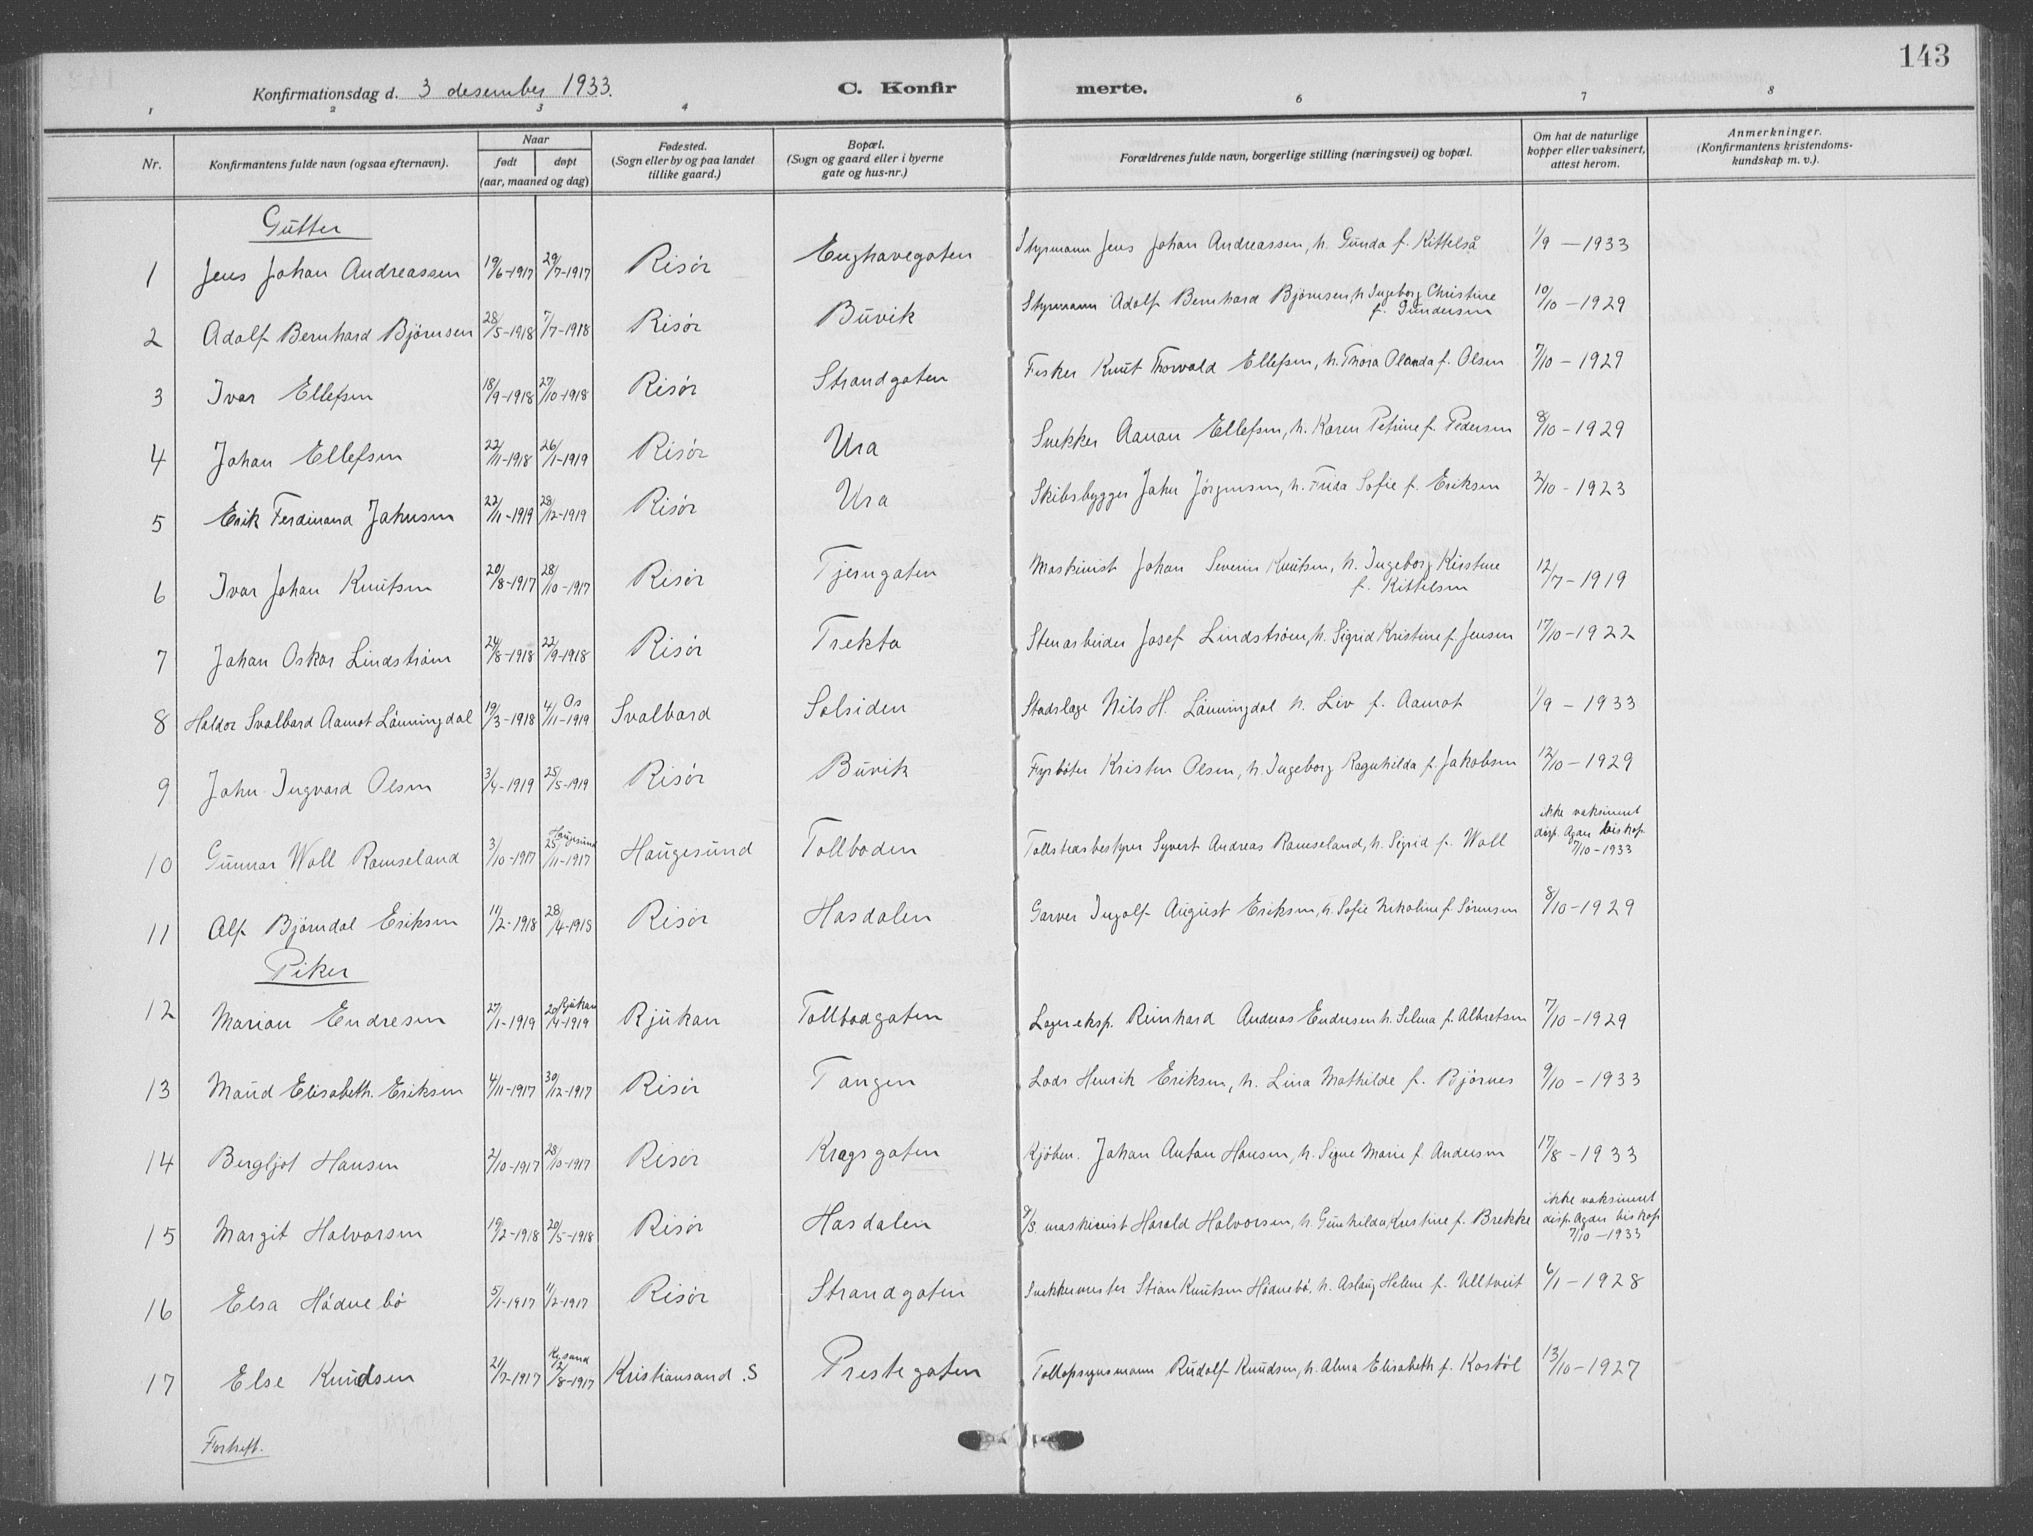 143
Konfirmationsdag d. 3 desember 1933.
C. Konfir merte.
1 2 3 4 5 6 7 8
Nr.
Konfirmantens fulde navn (ogsaa efternavn).
Naar
født døpt
(aar, maaned og dag)
Fødested.
(Sogn eller by og paa landet
tillike gaard.)
Bopæl.
(Sogn og gaard eller i byerne
gate og hus-nr.)
Forældrenes fulde navn, borgerlige stilling (næringsvei) og bopæl.
Om hat de naturlige
kopper eller vaksinert,
attest herom.
Anmerkninger.
(Konfirmantens kristendoms-
kundskap m. v.).
Gutter
1 Jens Johan Andreassen 19/6-1917 29/7-1917 Risör Enghavegaten Styrmann Jens Johan Andreassen, h. Gunda f. Kittelså 1/9 - 1933
2 Adolf Bernhard Björnsen 28/5-1918 7/7-1918 Risör Buvik Styrmann Adolf Bernhard Björnsen, h. Ingeborg Christine
f. Gundersen 10/10 - 1929
3 Ivar Ellefsen 18/9-1918 27/10-1918 Risör Strandgaten Fisker Knut Thorvald Ellefsen, h. Thora Olanda f. Olsen 7/10 - 1929
4 Johan Ellefsen 22/11-1918 26/1-1919 Risör Ura Snekker Aanon Ellefsen, h. Karen Petrine f. Pedersen 8/10 - 1929
5 Erik Ferdinand Johnsen 22/11-1919 28/12-1919 Risör Ura Skibsbygger John Jörgensen, h. Frida Sofie f. Eriksen 2/10 - 1923
6 Ivar Johan Knutsen 20/8-1917 28/10-1917 Risör Tjerngaten Maskinist Johan Severin Knutsen, h. Ingeborg Kirstine
f. Kittelsen 12/7 - 1919
7 Johan Oskar Lindström 24/8-1918 22/9-1918 Risör Trekta Stenarbeider Josef Lindström, h. Sigrid Kristine f. Jensen 17/10 - 1922
8 Haldor Svalbard Aamot Länningdal 19/3-1918 Os 4/11-1919 Svalbard Solsiden Stadslege Nils H. Länningdal h. Liv f. Aamot 1/9 - 1933
9 John Ingvard Olsen 3/4-1919 25/5-1919 Risör Buvik Fyrböter Kristen Olsen, h. Ingeborg Ragnhilda f. Jakobsen 12/10 - 1929
10 Gunnar Wall Ramseland 3/10-1917 Haugesund 25/11-1917 Haugesund Tollboden Tollstedsbestyrer Syvert Andreas Ramseland, h. Sigrid f. Wall ikke vaksinert
disp. Agder biskop
7/10 - 1933
11 Alf Björndal Eriksen 11/2-1918 28/4-1918 Risör Hasdalen Garver Ingolf August Eriksen, h. Sofie Nikoline f. Sörensen 8/10 - 1929
Piker
12 Marian Endresen 27/1-1919 Rjukan 20/4-1919 Rjukan Tollbodgaten Lagereksp. Reinhard Andreas Endresen h. Selma f. Albretsen 7/10 - 1929
13 Maud Elisabeth Eriksen 4/11-1917 30/12-1917 Risör Tangen Lods Henrik Eriksen, h. Lina Mathilde f. Björnes 9/10 - 1933
14 Bergljot Hansen 2/10-1917 28/10-1917 Risör Kragsgaten Kjöbm. Johan Anton Hansen, h. Signe Marie f. Andersen 17/8 - 1933
15 Margit Halvorsen 19/2-1918 20/5-1918 Risör Hasdalen maskinist Harald Halvorsen, h. Gunhilda Kristine f. Brekke ikke vaksinert
disp. Agder biskop
7/10 - 1933
16 Elsa Hödnebö 5/1-1917 11/2-1917 Risör Strandgaten Snekkermester Stian Knutsen Hödnebö, h. Aslaug Helene f. Ulltveit 6/1 - 1928
17 Else Knudsen 21/7-1917 Kr.sand 12/8-1917 Kristiansand .S Prestegaten Tollopsynsmann Rudolf Knudsen, h. Alma Elisabeth f. Kostöl 13/10 - 1927
Fortsett.